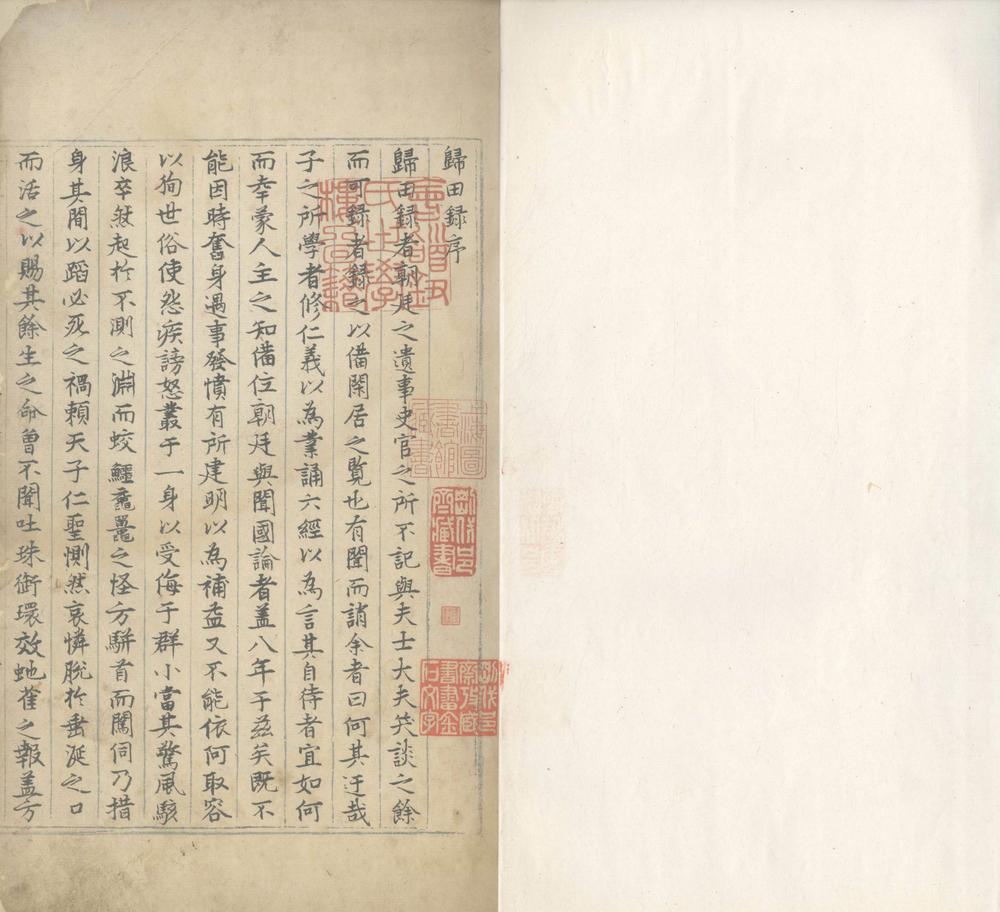 歸田録序
歸田録者朝廷之遺事史官之所不記與夫士大夫笑談之餘
而可録者録之以備閑居之覽也有聞而誚余者曰何其迂哉
子之所學者修仁義以為業誦六經以為言其自待者宜如何
而幸蒙人主之知備位朝廷與聞國論者盖八年于兹矣既不
能因時奮身遇事發憤有所建明以為補益又不能依何取容
以狥世俗使怨疾謗怒叢于一身以受侮于群小當其驚風駭
浪卒然起於不測之淵而蛟鱷黿鼉之怪方駢首而闖伺乃措
身其間以蹈必死之禍頼天子仁聖惻然哀憐脫於垂涎之口
而活之以賜其餘生之命曾不聞吐珠銜環效虵雀之報盖方
會稽鈕
氏世學
樓圖籍
上海圖
書館
藏書